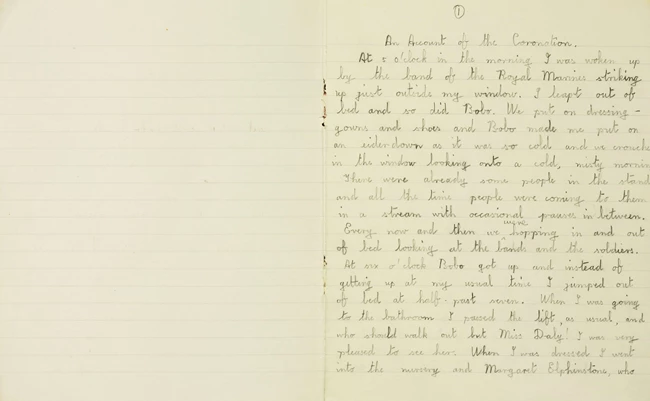 1
An Account of the Coronation.
At 5 o'clock in the morning I was woken up
by the band of the Royal Marines striking
up just outside my window. I leapt out of
bed and so did Bobo. We put on dressing-
gowns and shoes and Bobo made me put on
an eiderdown as it was so cold and we crouche
in the window looking onto a cold, misty mornin
There were already some people in the stand
and all the time people were coming to them
in a stream with occasional pauses in between.
Every now and then we were hopping in and out
of bed looking at the bands and the soldiers.
At six o'clock Bobo got up and instead of
getting up at my usual time I jumped out
of bed at half-past seven. When I was going
to the bathroom I passed the lift, as usual, and
who should walk out but Miss Daly! I was very
pleased to see her. When I was dressed I went
into the nursery and Margaret Elphinstone, who